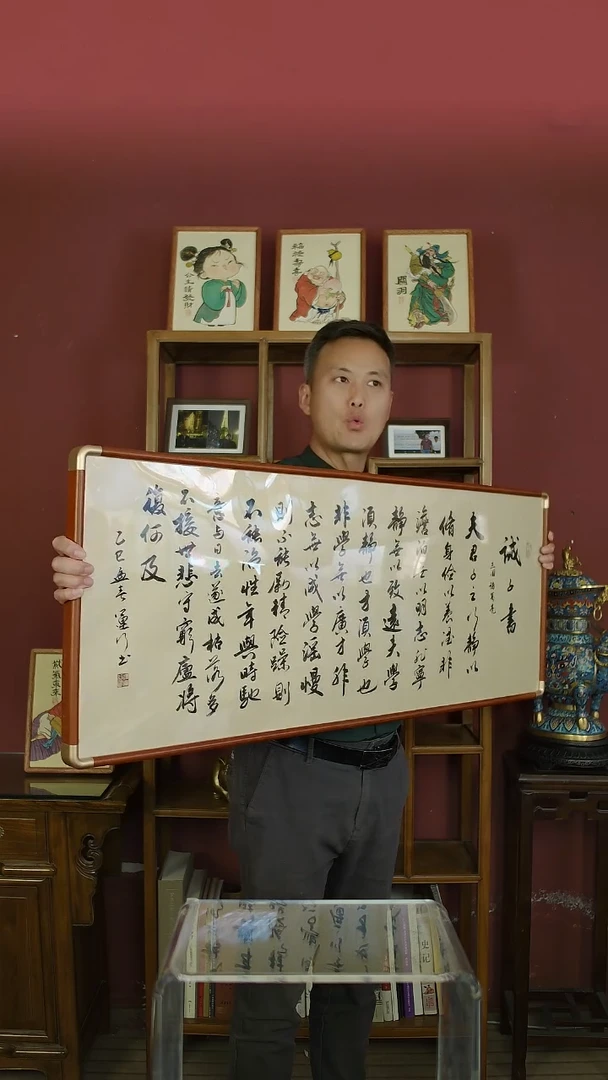 誡子書
三国 諸葛亮
夫君子之行静以
修身儉以養德非
澹泊無以明志非寧
靜無以致遠夫學
須靜也才須學也
非學無以廣才非
志無以成學淫慢
則不能勵精險躁則
不能冶性年與時馳
意與日去遂成枯落多
不接世悲守窮廬將
復何及
乙巳孟春
福祿壽喜
史记